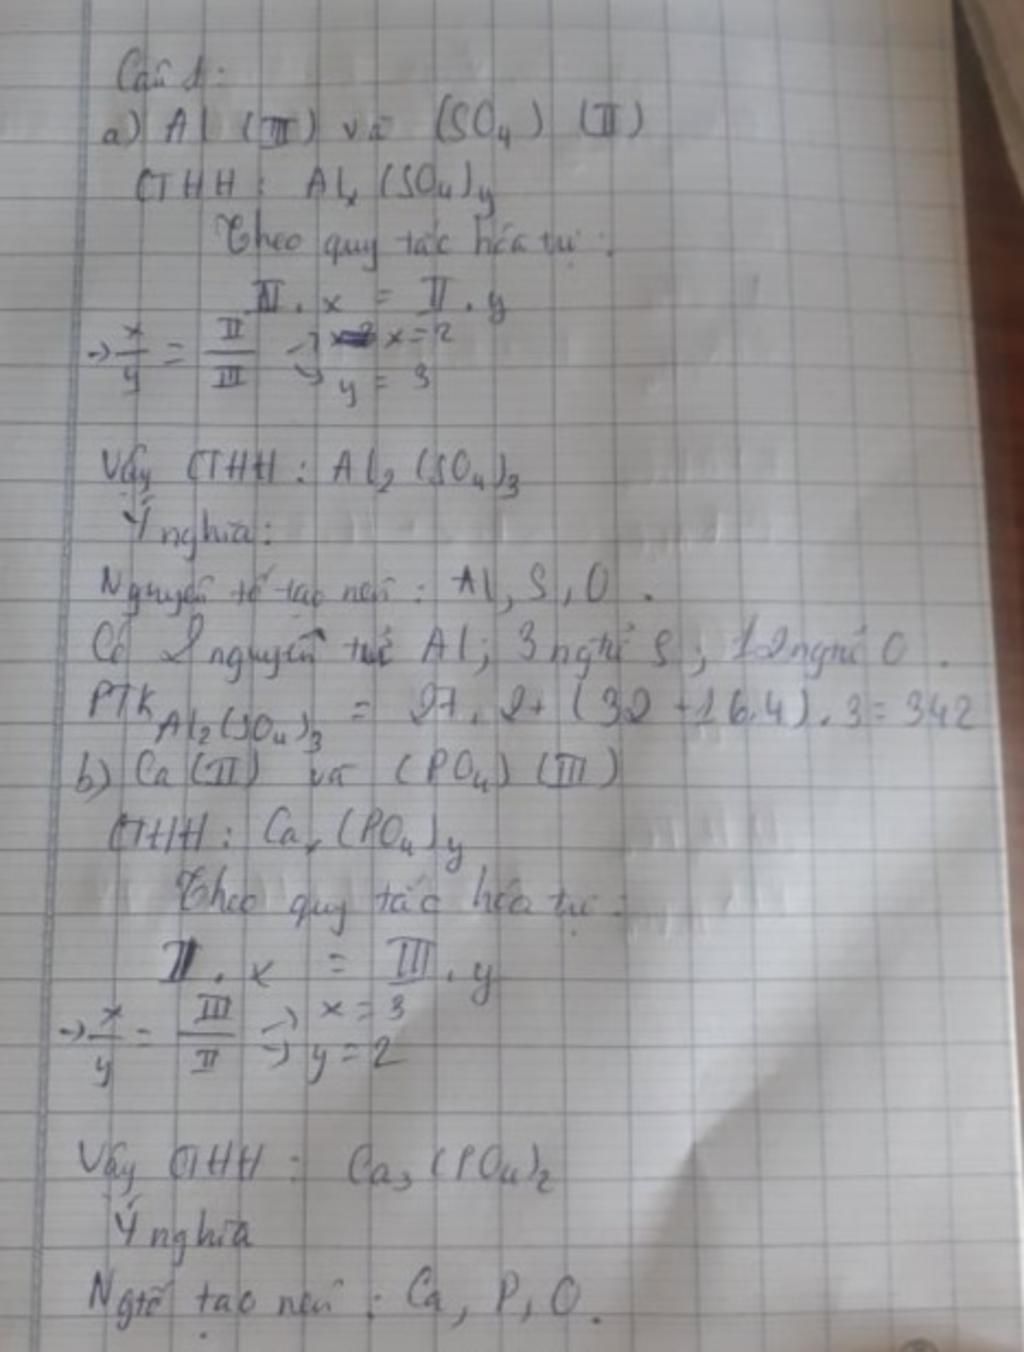 Câu 1:
a) Al (III) và (SO4) (II)
CTHH: Alx(SO4)y
Theo quy tắc hóa trị:
III . x = II . y
→ x/y = II/III → x = 2
→ y = 3
Vậy CTHH: Al2(SO4)3
Ý nghĩa:
Nguyên tố tạo nên: Al, S, O.
Có 2 nguyên tử Al; 3 ngtử S; 12 ngtử O.
PTK Al2(SO4)3 = 27.2+(32+16.4).3=342
b) Ca(II) và (PO4) (III)
CTHH: Cax(PO4)y
Theo quy tắc hóa trị:
II . x = III . y
→ x/y = III/II → x = 3
→ y = 2
Vậy CTHH: Ca3(PO4)2
Ý nghĩa
Ngtố tạo nên: Ca, P, O.